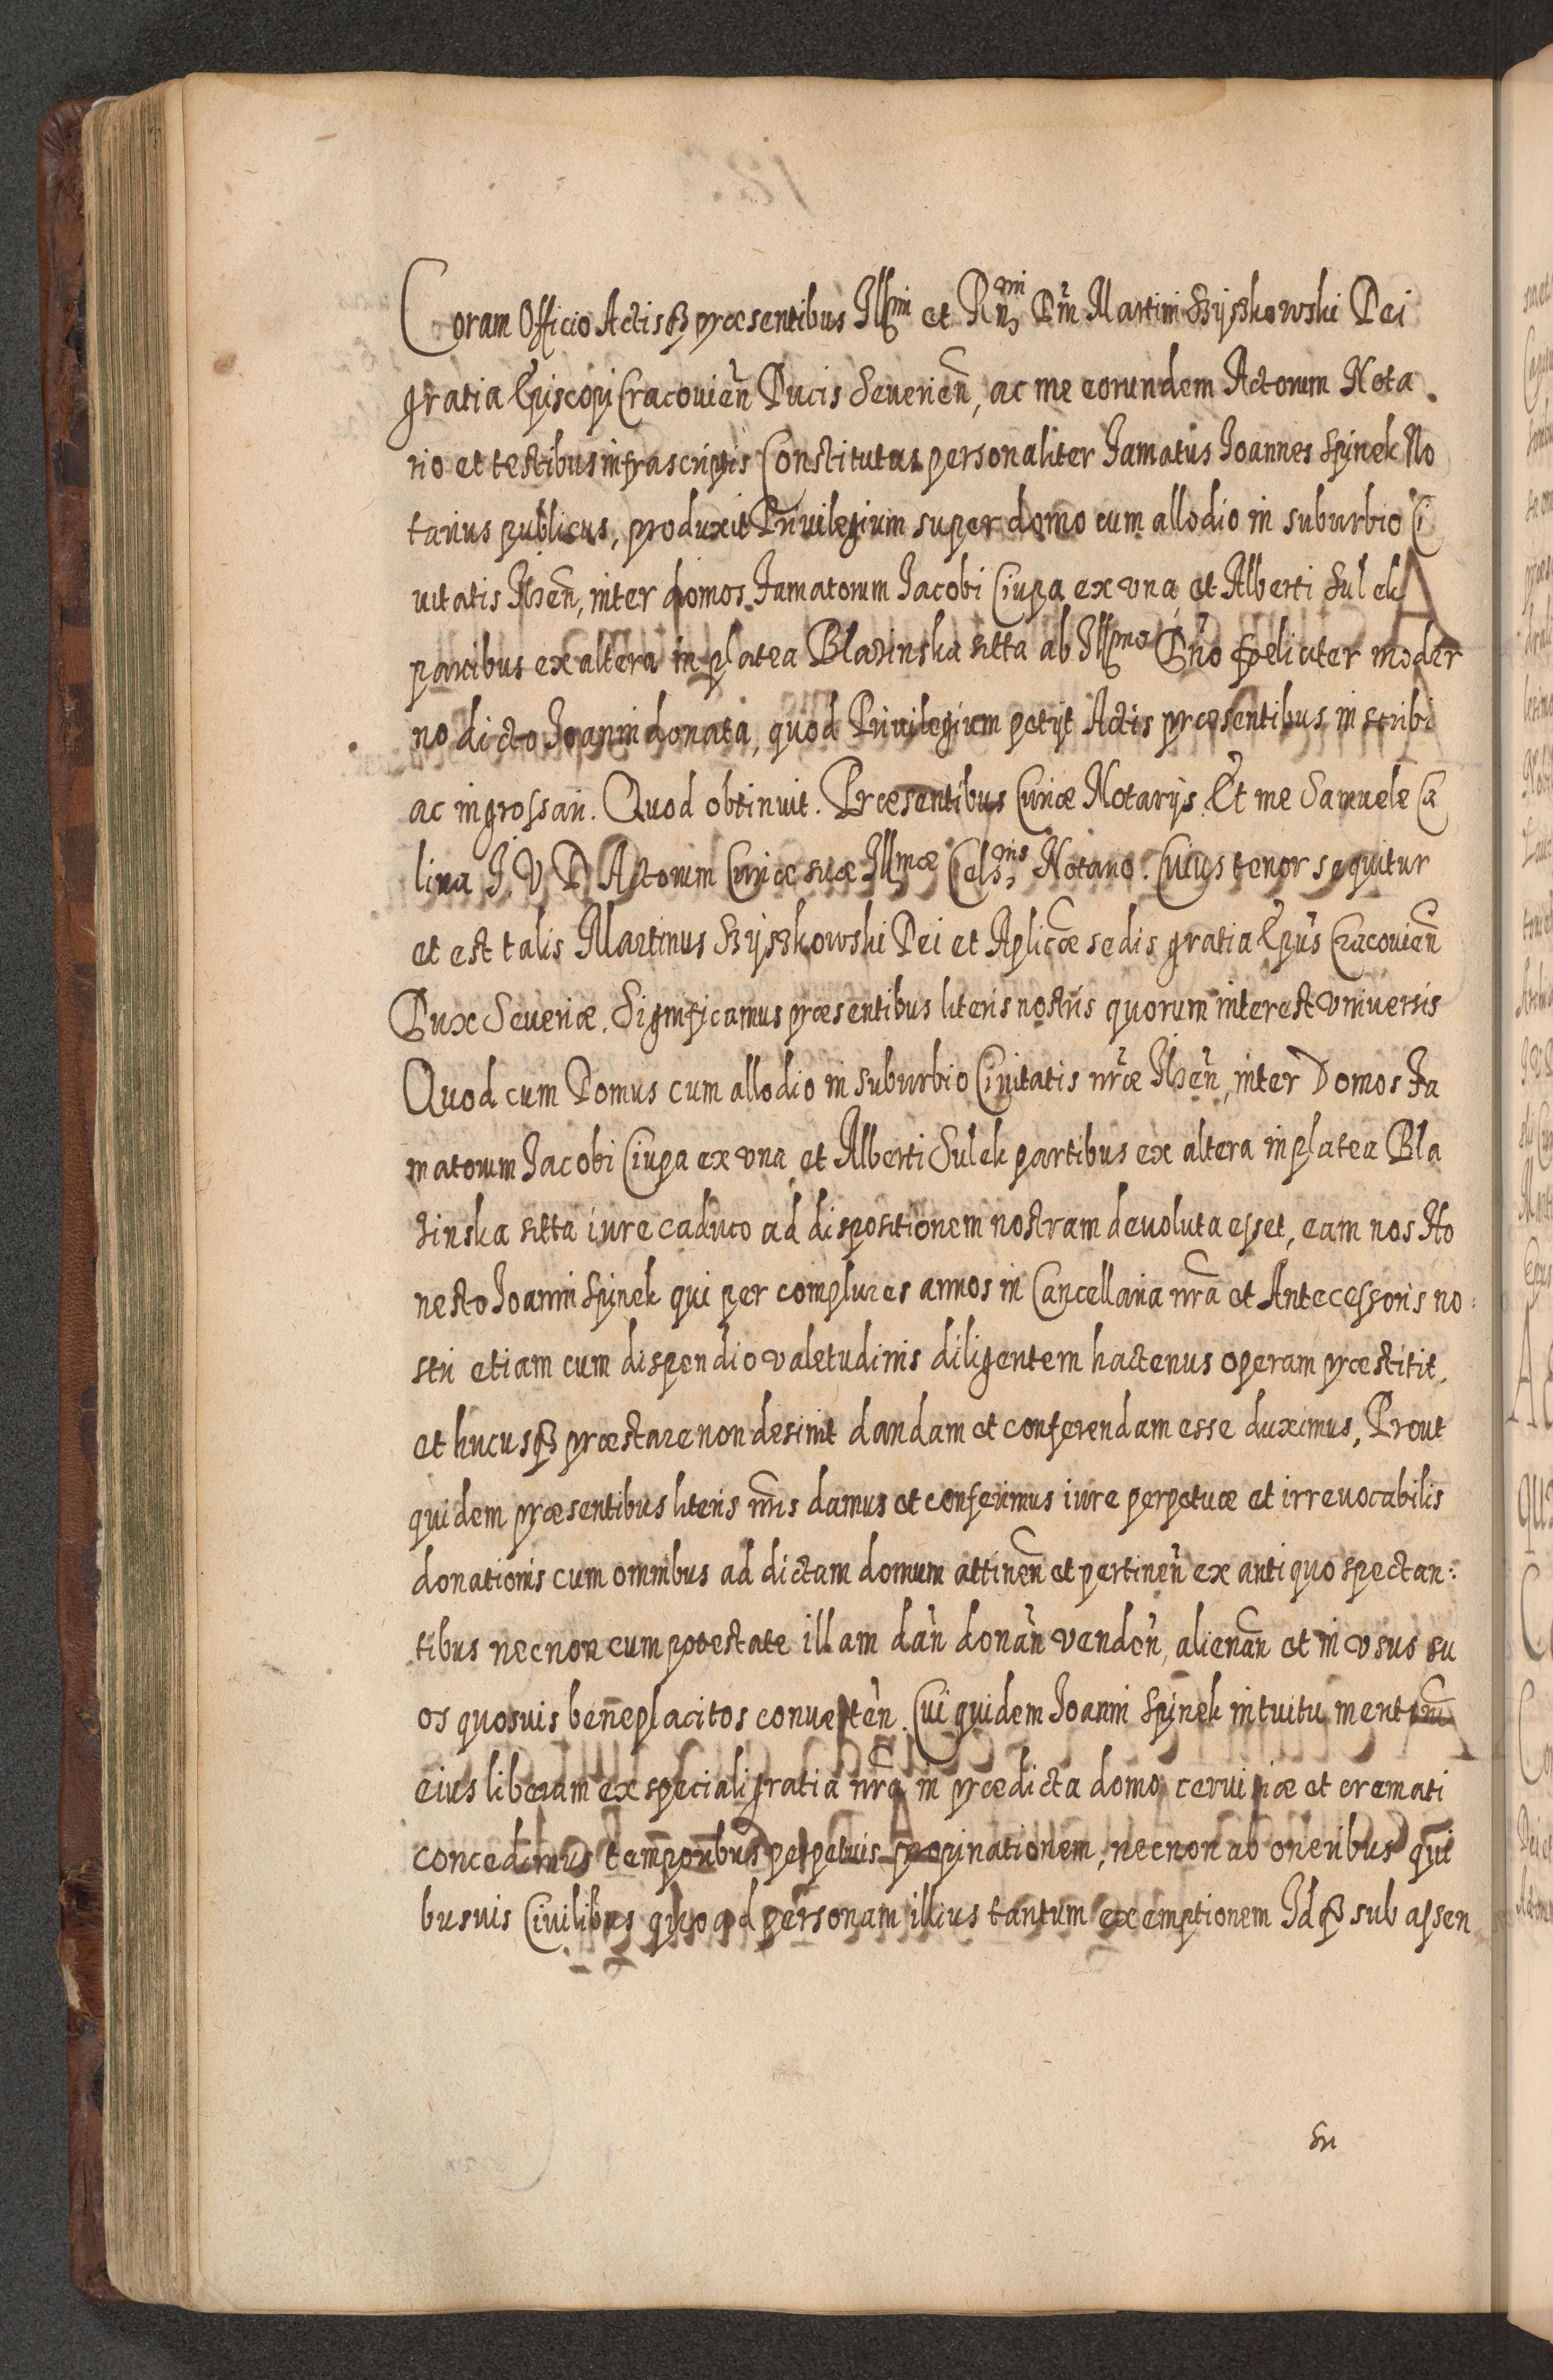 Coram Officio Actisq̃ præsentibus Illmi et Rñmi Dñi Martini Szyszkowski Dei
gratia Episcopi Cracovień Ducis Severień, ac me eorundem Actorum Nota
rio et testibus infrascriptis Constitutus personaliter Famatus Joannes Spinek No
tarius publicus, produxit Privilegium super domo cum allodio in suburbio Ci
vitatis , inter domos Famatorum Jacobi Ciupa ex una et Alberti Sulek
partibus ex altera in platea Blazinska sitta ab Illmo Dño fœliciter moder
no dicto Joanni donata, quod Privilegium petijt Actis præsentibus inscribi
ac ingrossari. Quod obtinuit. Præsentibus Curiæ Notarijs. Et me Samuele Ca
lina J. V. D. Actorum Curiæ suæ Illmæ Celsnis Notario. Cuius tenor sequitur
et est talis Martinus Szyszkowski Dei et Aplicæ sedis gratia Epũs Cracovień
Dux Severiæ. Significamus præsentibus literis nostris quorum interest universis
Quod cum Domus cum allodio in suburbio Civitatis nr̃æ , inter Domos Fa
matorum Jacobi Ciupa ex una et Alberti Sulek partibus ex altera in platea Bla
zinska sitta iure caduco ad dispositionem nostram devoluta esset, eam nos Ho
nesto Joanni Spinek qui per complures annos in Cancellaria nr̃a et Antecessoris no:
stri etiam cum dispendio valetudinis diligentem hactenus operam præstitit,
et hucusq̃ præstare non desinit dandam et conferendam esse duximus, Prout
quidem præsentibus literis nr̃is damus et conferimus iure perpetuæ et irrevocabilis
donationis cum omnibus ad dictam domum attineñ et pertineñ ex antiquo spectan:
tibus necnon cum potestate illam dañ donañ vendeñ, alienañ et in usus su
os quosvis beneplacitos converteñ. Cui quidem Joanni Spinek intuitu
eius liberam ex speciali gratia nr̃a in prædicta domo cervisiæ et cremati
concedimus temporibus perpetuis propinationem, necnon ab oneribus qui
busvis Civilibus quoad personam illius tantum exemptionem Idq̃ sub assen
su